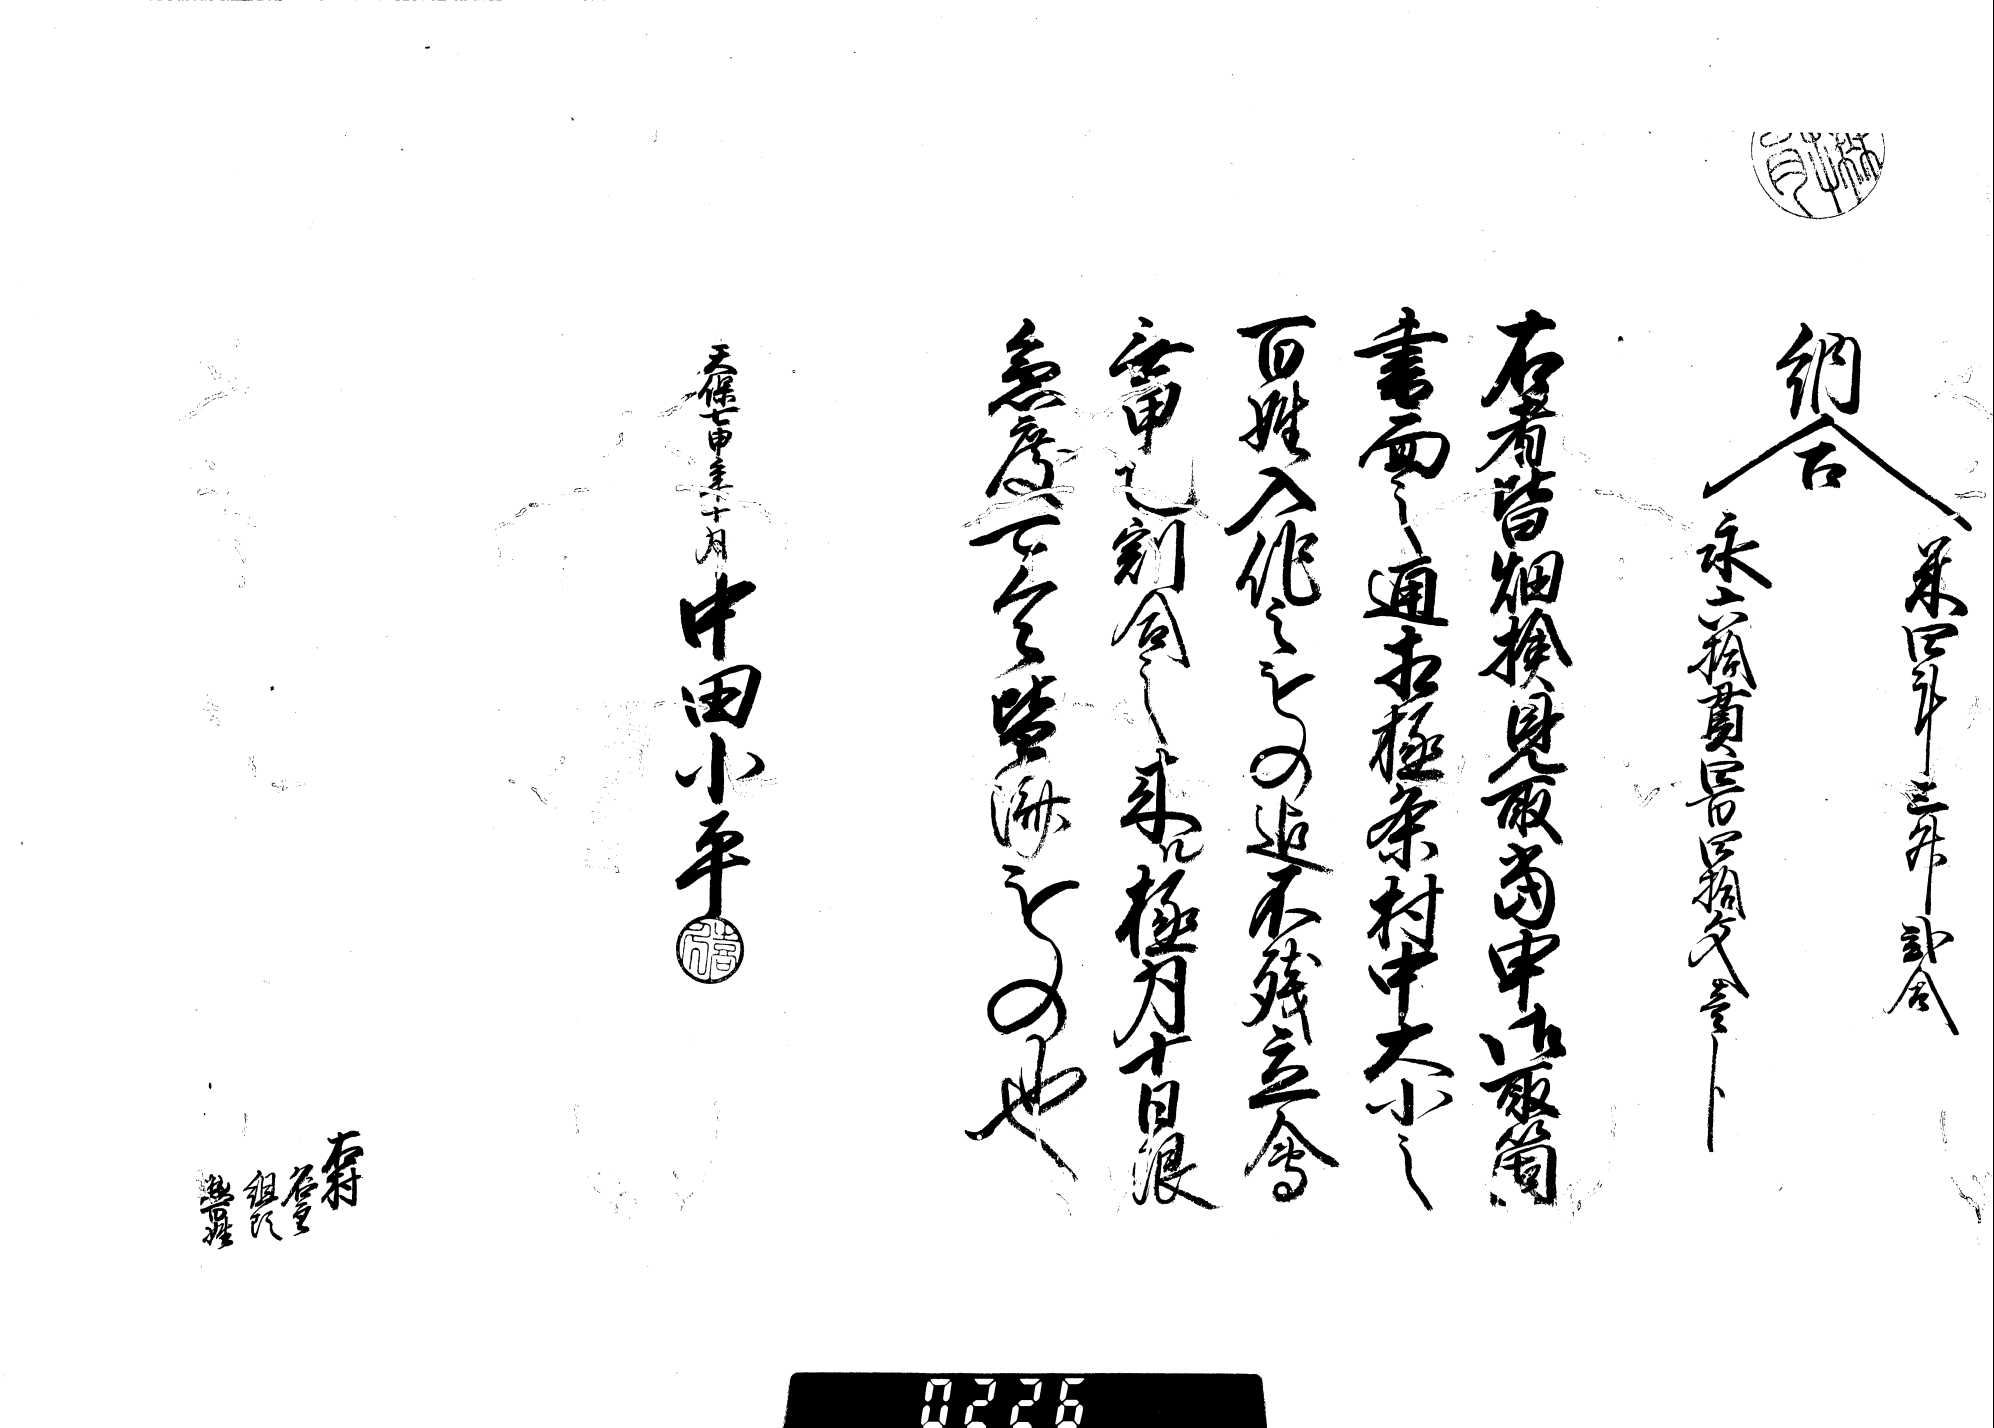 納合
米四斗三升弐合
永六拾貫四百四拾文壱分
右者皆畑検見取当申御取箇
書面之通相極条村中大小之
百姓入作之もの迄不残立会
無甲乙割合之来ル極月十日限
急度可令皆済もの也
天保七申年十月 中田小平
右村
名主
組頭
惣百姓
0226